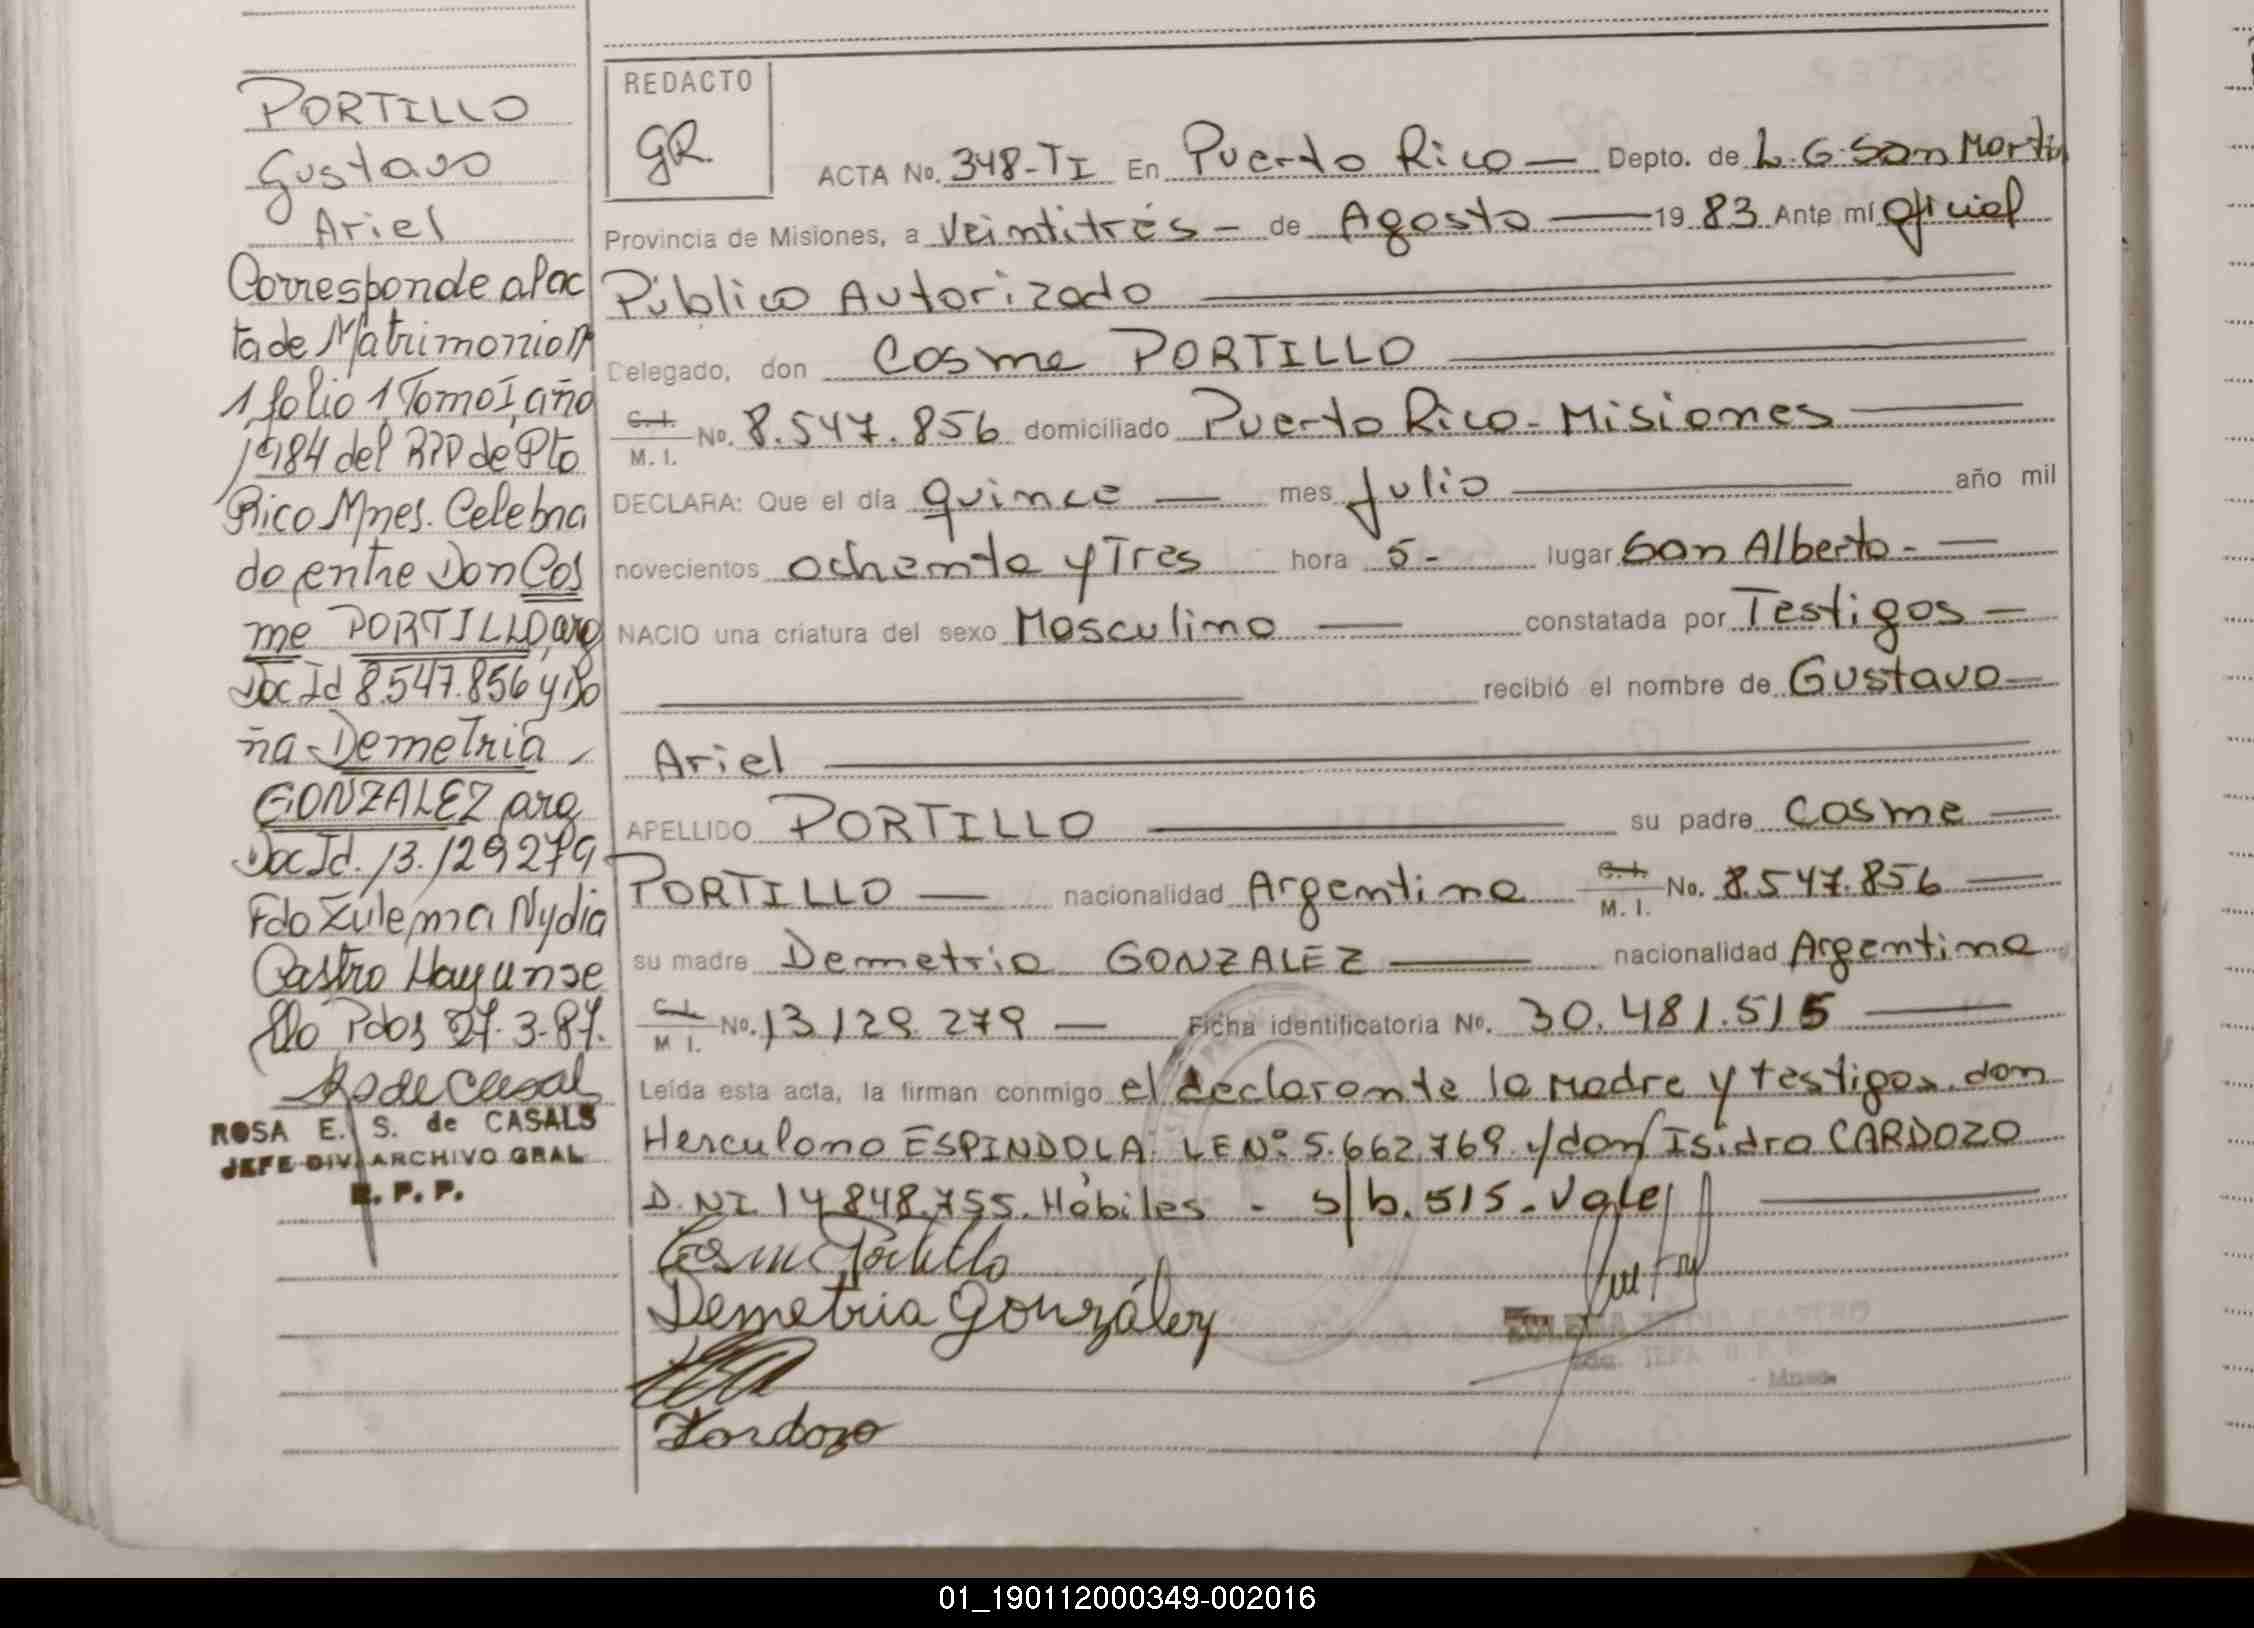 PORTILLO
Gustavo
Ariel
Corresponde al ac
ta de Matrimonio n
1 folio 1 Tomo I, año
1984 del RPP de Pto
Rico Mnes. Celebra
do entre Don Cos
me PORTILLO, arg
Doc Id 8.547.856 y Do
ña Demetria
GONZALEZ arg
Doc Id. 13.129279
Fdo Zulema Nydia
Castro Hay un se
llo Pdas 27.3.87.
ROSA E. S. de CASALS
JEFE DIV. ARCHIVO GRAL
R. P. P.
REDACTO
GR.
ACTA No. 348-TI En Puerto Rico — Depto. de L. G. San Martin
Provincia de Misiones, a veintitrés - de Agosto — 19 83 Ante mí oficial
Público Autorizado
Delegado, don Cosme PORTILLO
C.I. M. I. No. 8.547.856 domiciliado Puerto Rico - Misiones
DECLARA: Que el día quince — mes Julio — año mil
novecientos ochenta y Tres hora 5- lugar San Alberto -
NACIO una criatura del sexo Masculino — constatada por Testigos —
recibió el nombre de Gustavo —
Ariel
APELLIDO PORTILLO — su padre Cosme —
PORTILLO — nacionalidad Argentina C.I. M. I. No. 8.547.856 —
su madre Demetria GONZALEZ — nacionalidad Argentina
C.I. M I. No. 13.129.279 — Ficha identificatoria No. 30.481.515 —
Leída esta acta, la firman conmigo el declarante la Madre y testigos don
Herculano ESPINDOLA. L E Nº 5.662.769 y don Isidro CARDOZO
D. NI. 14.848.755. Hábiles - s/b. 515. Vale
Cosme Portillo
Demetria González
Kardozo
ZULEMA NYDIA CASTRO
01_190112000349-002016